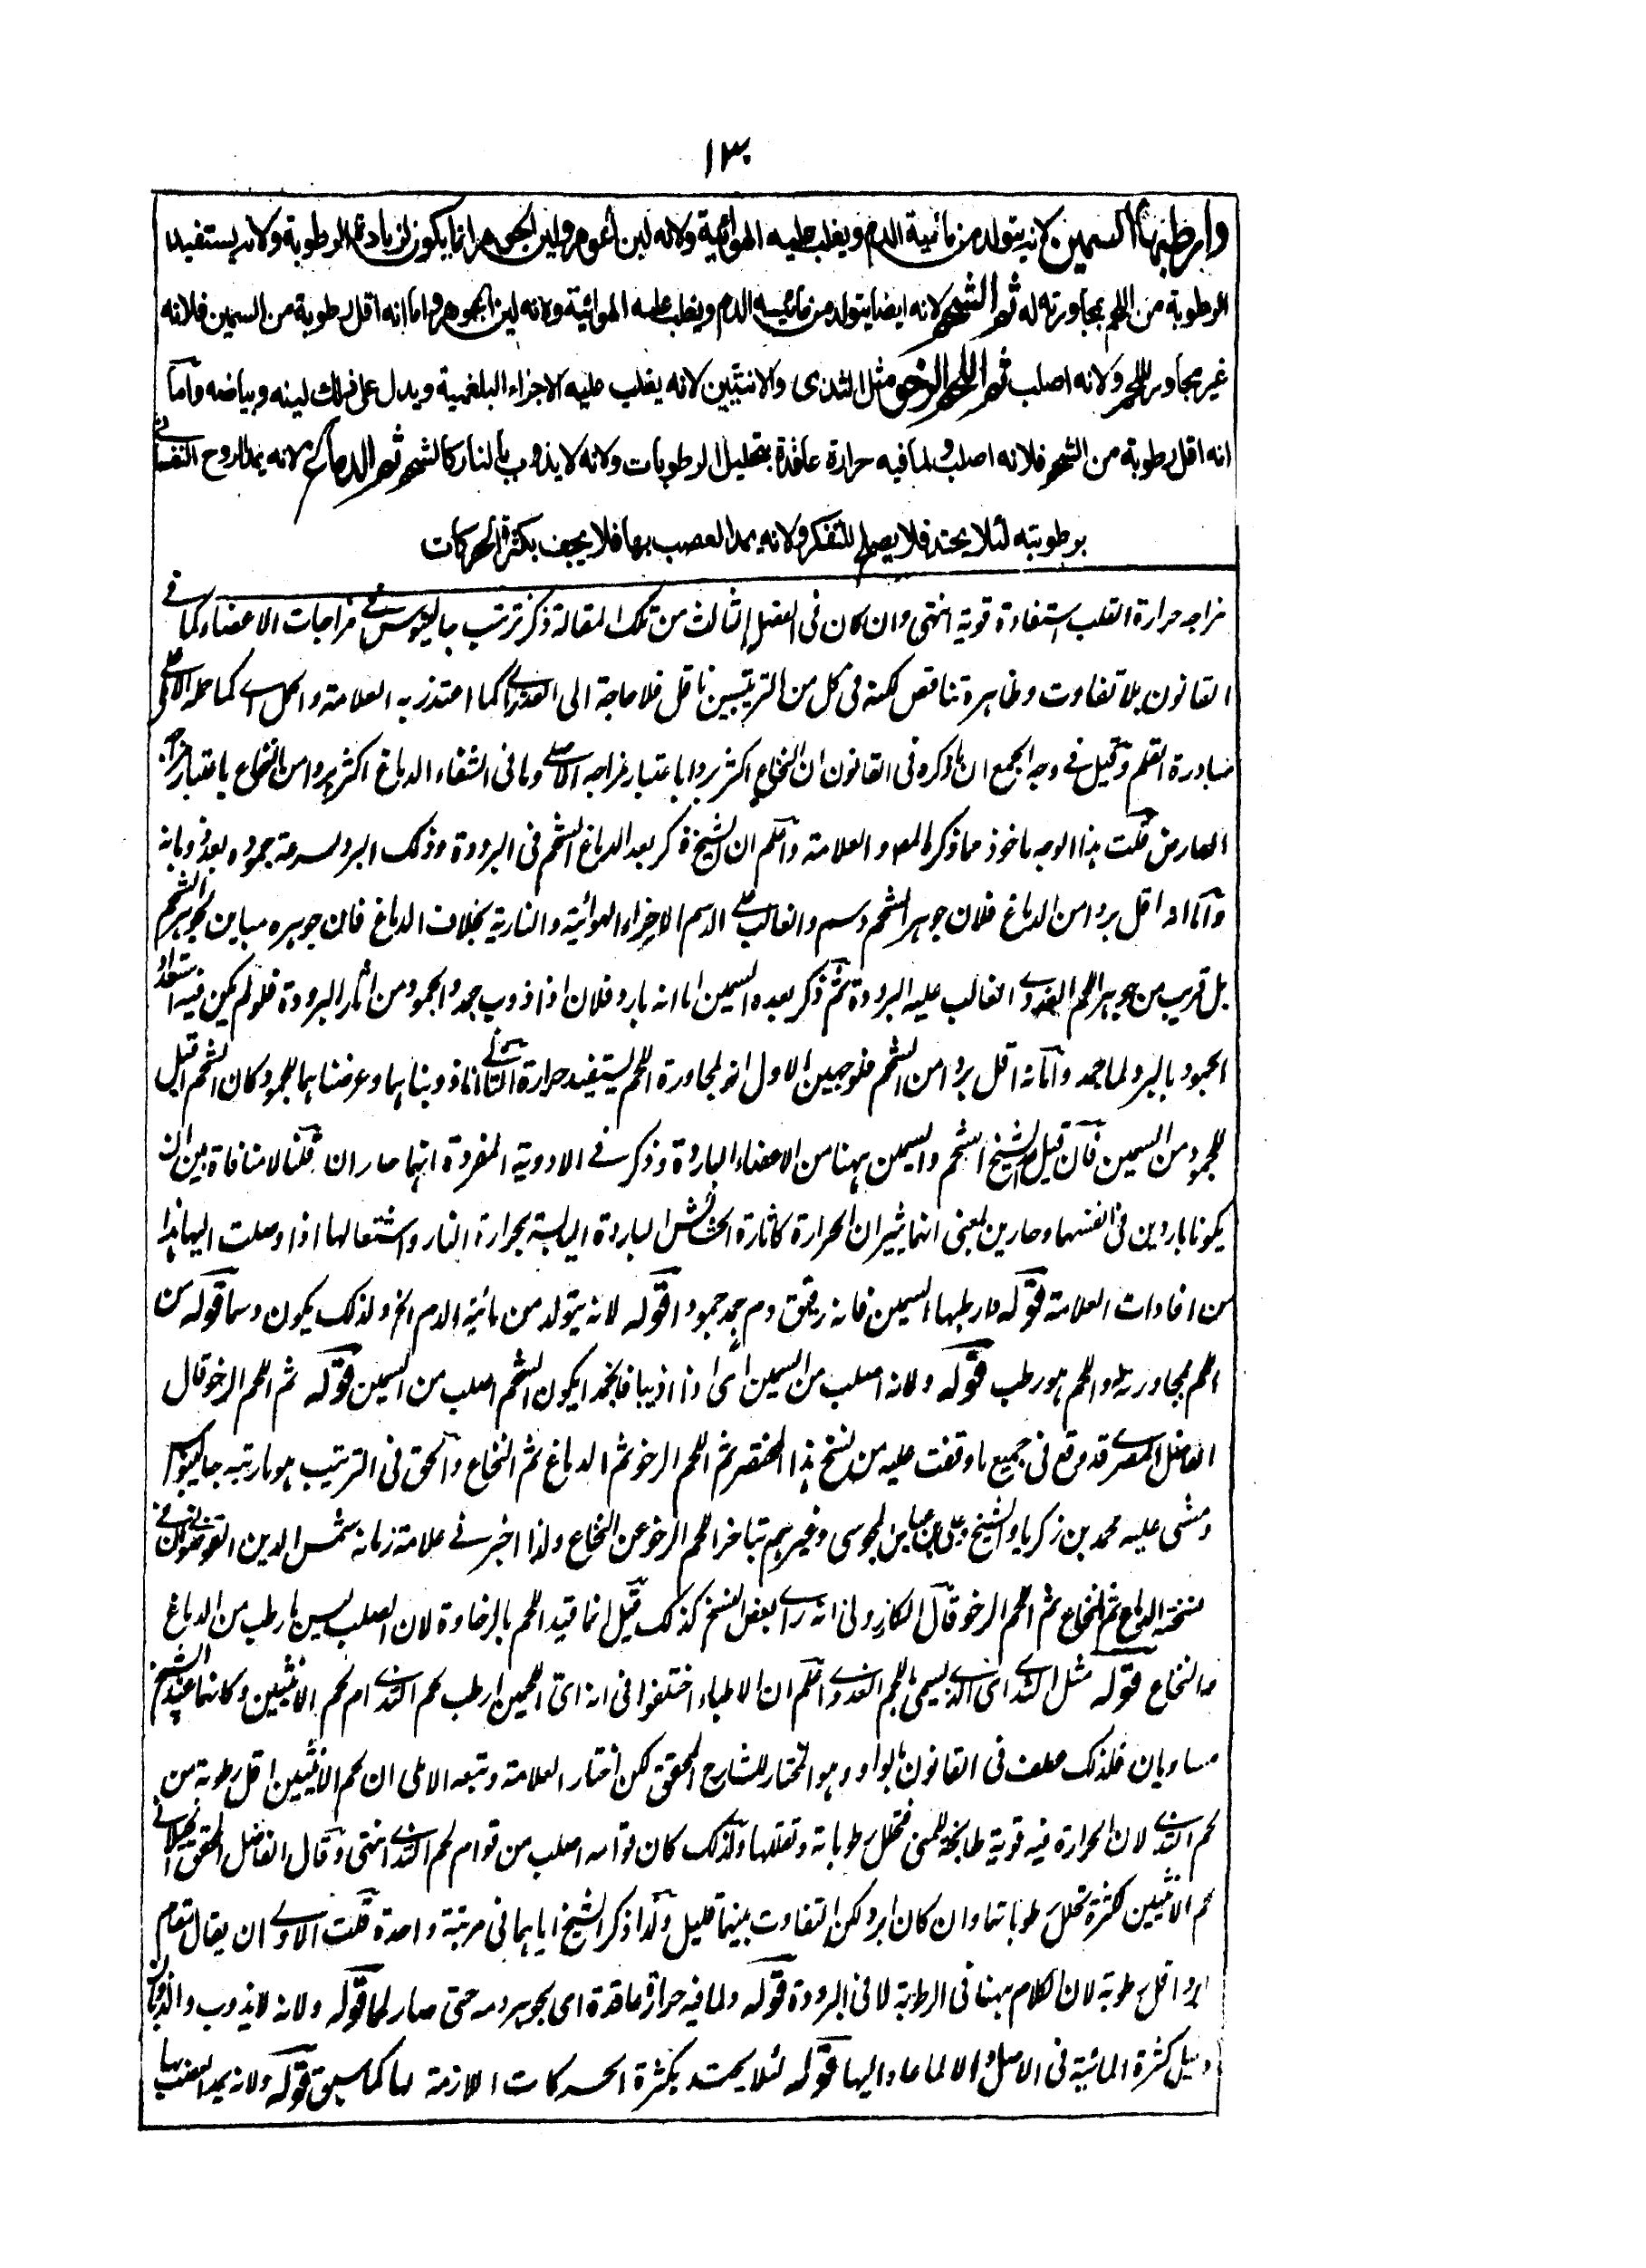 ١٣٠
وارطبها السمين لانه يتولد من مائية الدم ويغلب عليه الهوائية ولانه لين الجوهر ولين الجوهر انما يكون لزيادة الرطوبة ولانه يستفيد
الرطوبة من اللحم بمجاورته له ثم الشحم لانه ايضا يتولد من مائية الدم ويغلب عليه الهوائية ولانه لين الجوهر واما انه اقل رطوبة من السمين فلانه
غير مجاور للحم ولانه اصلب ثم اللحم الرخو مثل الثدى والانثيين لانه يغلب عليه الاجزاء البلغمية ويدل على ذلك لينه وبياضه واما
انه اقل رطوبة من الشحم فلانه اصلب ولما فيه حرارة عاقدة بتحليل الرطوبات ولانه لا يذوب بالنار كالشحم ثم الدماغ لانه يمد الروح النفسانى
برطوبته لئلا يحتد فلا يصلح للتفكر ولانه يمد العصب بها فلا يجف بكثرة الحركات
مزاجه حرارة القلب استفادة قوية انتهى وان كان فى الفصل الثالث من تلك المقالة ذكر ترتيب جالينوس فى مزاجات الاعضاء كما فى
القانون بلا تفاوت وظاهره تناقض لكنه فى كل من الترتيبين ناقل فلا حاجة الى العذر كما اعتذر به العلامة والحمل كما حمله الآملى
مبادرة القلم وقيل فى وجه الجمع ان ما ذكره فى القانون ان النخاع اكثر بردا باعتبار مزاجه الاصلى وما فى الشفاء الدماغ اكثر بردا من النخاع باعتبار مزاجه
العارض قلت هذا الوجه ماخوذ مما ذكره المص والعلامة واعلم ان الشيخ ذكر بعد الدماغ الشحم فى البرودة وذلك البرد لسرعة جموده بعد ذوبانه
واما انه اقل بردا من الدماغ فلان جوهر الشحم دسم والغالب على الدسم الاجزاء الهوائية والنارية بخلاف الدماغ فان جوهره مباين لجوهر الشحم
بل قريب من جوهر اللحم الغددى الغالب عليه البرودة ثم ذكر بعده السمين اما انه بارد فلان اذا ذوب جمد والجمود من اثار البرودة فلو لم يكن فيه استعداد
الجمود بالبرد لما جمد واما انه اقل بردا من الشحم فلوجهين الاول انه لمجاورة اللحم يستفيد حرارة الثانى انا اذا ذوبناهما وعرضناهما للجمود كان الشحم اقبل
للجمود من السمين فان قيل الشيخ الشحم والسمين ههنا من الاعضاء الباردة وذكر فى الادوية المفردة انهما حاران قلنا لا منافاة بين ان
يكونا باردين فى انفسهما وحارين بمعنى انهما يثيران الحرارة كاثارة الحشائش الباردة اليابسة بحرارة النار واشتعالها اذا وصلت اليها هذا
من افادات العلامة قوله وارطبها السمين فانه رقيق دم جمد جمودا قوله لانه يتولد من مائية الدم الخ ولذلك يكون دسما قوله من
اللحم لمجاورته له واللحم هو رطب قوله ولانه اصلب من السمين اى اذا اذيبا فانجمدا يكون الشحم اصلب من السمين قوله ثم اللحم الرخو قال
الفاضل المصرى قد وقع فى جميع ما وقفت عليه من نسخ هذا المختصر ثم اللحم الرخو ثم الدماغ ثم النخاع والحق فى الترتيب هو ما رتبه جالينوس
ومشى عليه محمد بن زكريا والشيخ وعلى بن عباس المجوسى وغيرهم بتاخر اللحم الرخو عن النخاع ولذا اخبر فى علامة زمانه شمس الدين
نسخته الدماغ ثم النخاع ثم اللحم الرخو قال الكازرونى انه راى بعض النسخ كذلك قيل انما قيد اللحم بالرخاوة لان الصلب ليس بارطب من الدماغ
والنخاع قوله مثل الثدى اى الذى يسمى باللحم الغددى واعلم ان الاطباء اختلفوا فى انه اى اللحمين ارطب لحم الثدى ام لحم الانثيين وكانهما عند الشيخ
مساويان فلذلك عطف فى القانون بالواو وهو المختار للشارح المحقق لكن اختار العلامة وتبعه الاملى ان لحم الانثيين اقل رطوبة من
لحم الثدى لان الحرارة فيه قوية طابخة للمنى فتحلل رطوباته وتقللها ولذلك كان قوامه اصلب من قوام لحم الثدى انتهى وقال الفاضل المحقق الجيلانى
لحم الانثيين لكثرة تحلل رطوباتها وان كان ابرد لكن التفاوت بينهما قليل ولذا ذكر الشيخ اياهما فى مرتبة واحدة قلت الاولى ان يقال مقام
ابرد اقل رطوبة لان الكلام ههنا فى الرطوبة لا فى البرودة قوله ولما فيه حرارة عاقدة اى لجوهر دمه حتى صار لحما قوله ولانه لا يذوب والذوبان
دليل كثرة المائية فى الاصل والا لما عاد اليها قوله لئلا يحتد بكثرة الحركات اللازمة لها كما سبق قوله ولانه يمد العصب بها